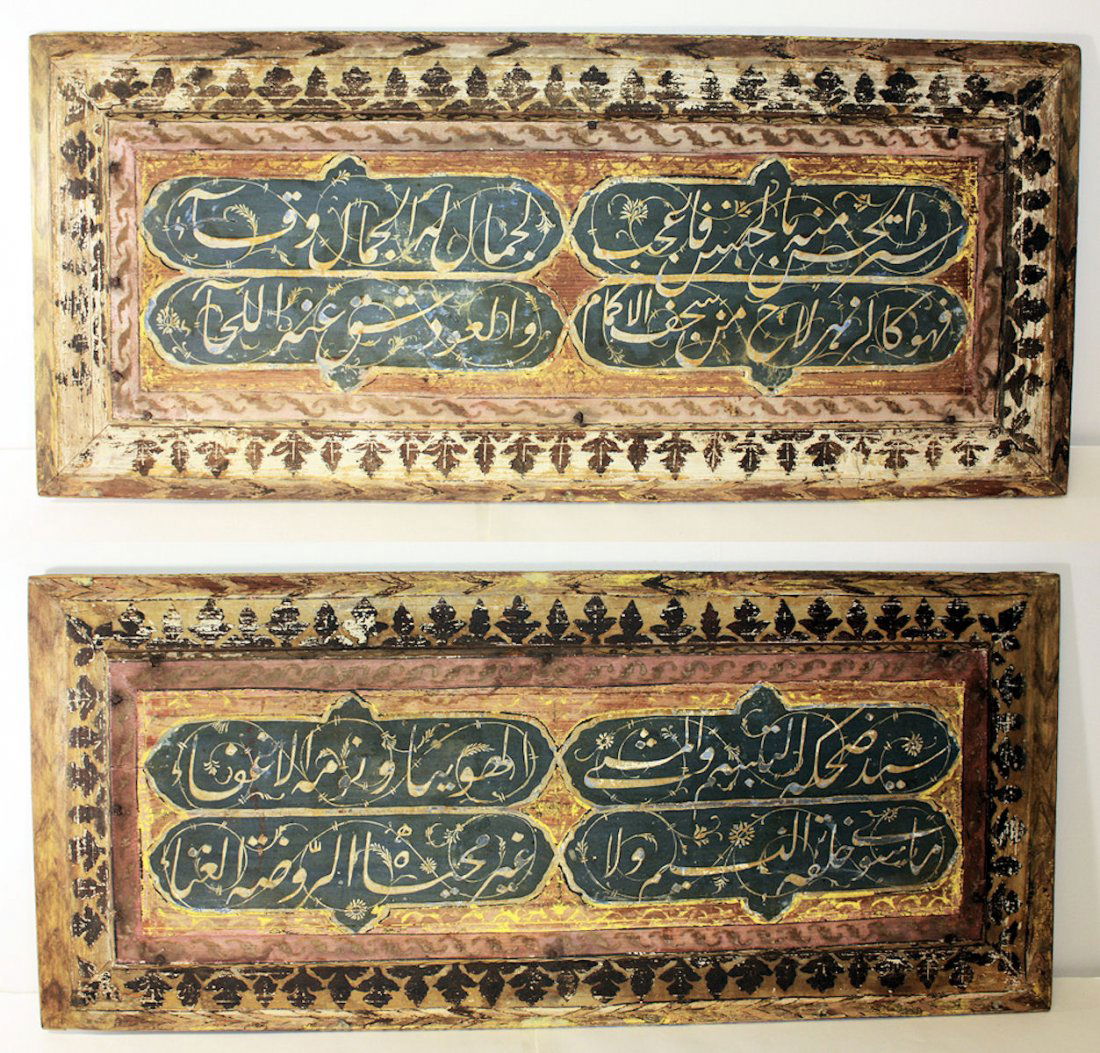 ستر الحسن منه بالحسن فاعجب لجمال له الجمال وقآ
فهو كالزهر لاح من سجف الاكمام والعود شق عنه اللحآ
سيد ضحكه التبسم والمشى الهوينا ونومه الاغفاء
ما سوى خلقه النسيم ولا غير محياه الروضة الغناء